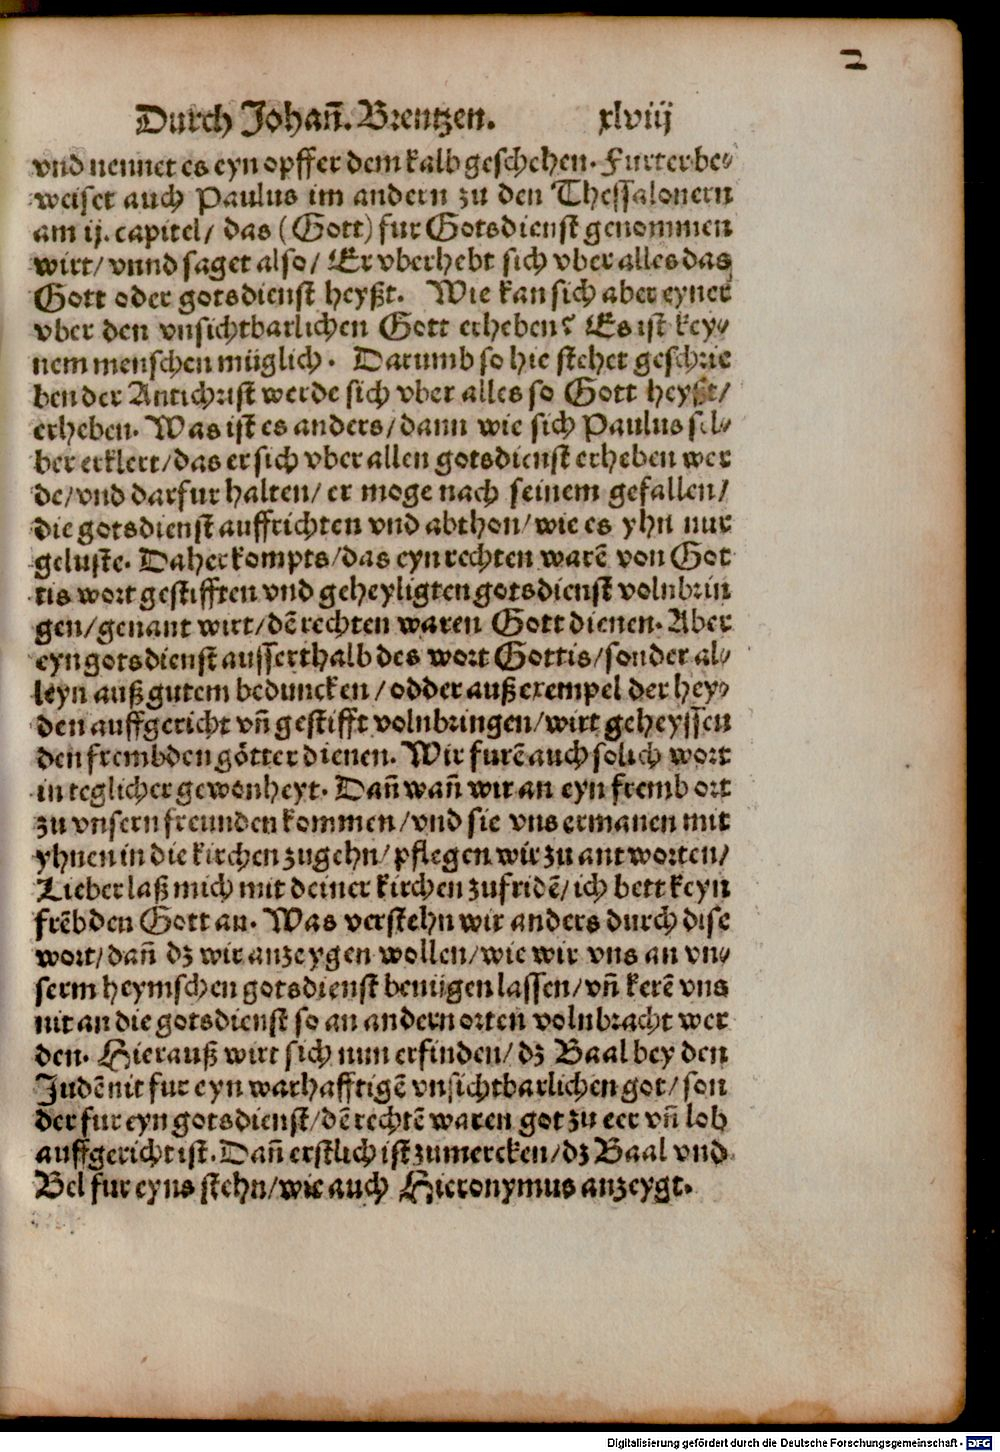 2
Durch Johañ. Brentzen. xlviij
vnd nennet es eyn opffer dem kalb geschehen. Furter be⸗
weiset auch Paulus im andern zu den Thessalonern
am ij. capitel/ das (Gott) fur Gotsdienst genommen
wirt/ vnnd saget also/ Er vberhebt sich vber alles das
Gott oder gotsdienst heyßt. Wie kan sich aber eyner
vber den vnsichtbarlichen Gott erheben? Es ist key⸗
nem menschen müglich. Darumb so hie stehet geschrie
ben der Antichrist werde sich vber alles so Gott heyßt/
erheben. Was ist es anders/ dann wie sich Paulus sel⸗
ber erklert/ das er sich vber allen gotsdienst erheben wer
de/ vnd darfur halten/ er moge nach seinem gefallen/
die gotsdienst auffrichten vnd abthon/ wie es yhn nur
geluste. Daher kompts/ das eyn rechten warē von Got
tis wort gestifften vnd geheyligten gotsdienst volnbrin
gen/ genant wirt/ dē rechten waren Gott dienen. Aber
eyn gotsdienst ausserthalb des wort Gottis/ sonder al⸗
leyn auß gutem beduncken/ odder auß exempel der hey⸗
den auffgericht vñ gestifft volnbringen/ wirt geheyssen
den frembden götter dienen. Wir furē auch solich wort
in teglicher gewonheyt. Dañ wañ wir an eyn fremb ort
zu vnsern freunden kommen/ vnd sie vns ermanen mit
yhnen in die kirchen zugehn/ pflegen wir zu antworten/
Lieber laß mich mit deiner kirchen zufridē/ ich bett keyn
frēbden Gott an. Was verstehn wir anders durch dise
wort/ dañ dz wir anzeygen wollen/ wie wir vns an vn⸗
serm heymschen gotsdienst benügen lassen/ vñ kerē vns
nit an die gotsdienst so an andern orten volnbracht wer
den. Hierauß wirt sich nun erfinden/ dz Baal bey den
Judē nit fur eyn warhafftigē vnsichtbarlichen got/ son
der fur eyn gotsdienst/ dē rechtē waren got zu eer vñ lob
auffgericht ist. Dañ erstlich ist zumercken/ dz Baal vnd
Bel fur eyns stehn/ wie auch Hieronymus anzeygt.
Digitalisierung gefördert durch die Deutsche Forschungsgemeinschaft - DFG